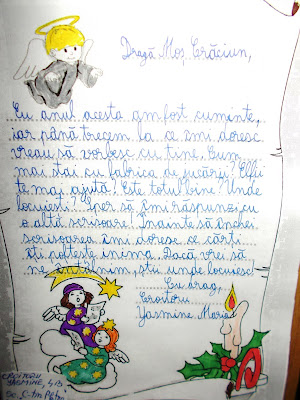 Dragă Moș Crăciun,
Eu anul acesta am fost cuminte,
iar până trecem la ce îmi doresc
vreau să vorbesc cu tine. Cum
mai stai cu fabrica de jucării? Elfii
te mai ajută? Este totul bine? Unde
locuiești? Sper să îmi răspunzi cu
o altă scrisoare! Înainte să închei
scrisoarea îmi doresc ce cărți
îți poftește inima. Dacă vrei să
ne întâlnim, știi unde locuiesc!
Cu drag,
Croitoru
Yasmine Maria
CROITORU
YASMINE,